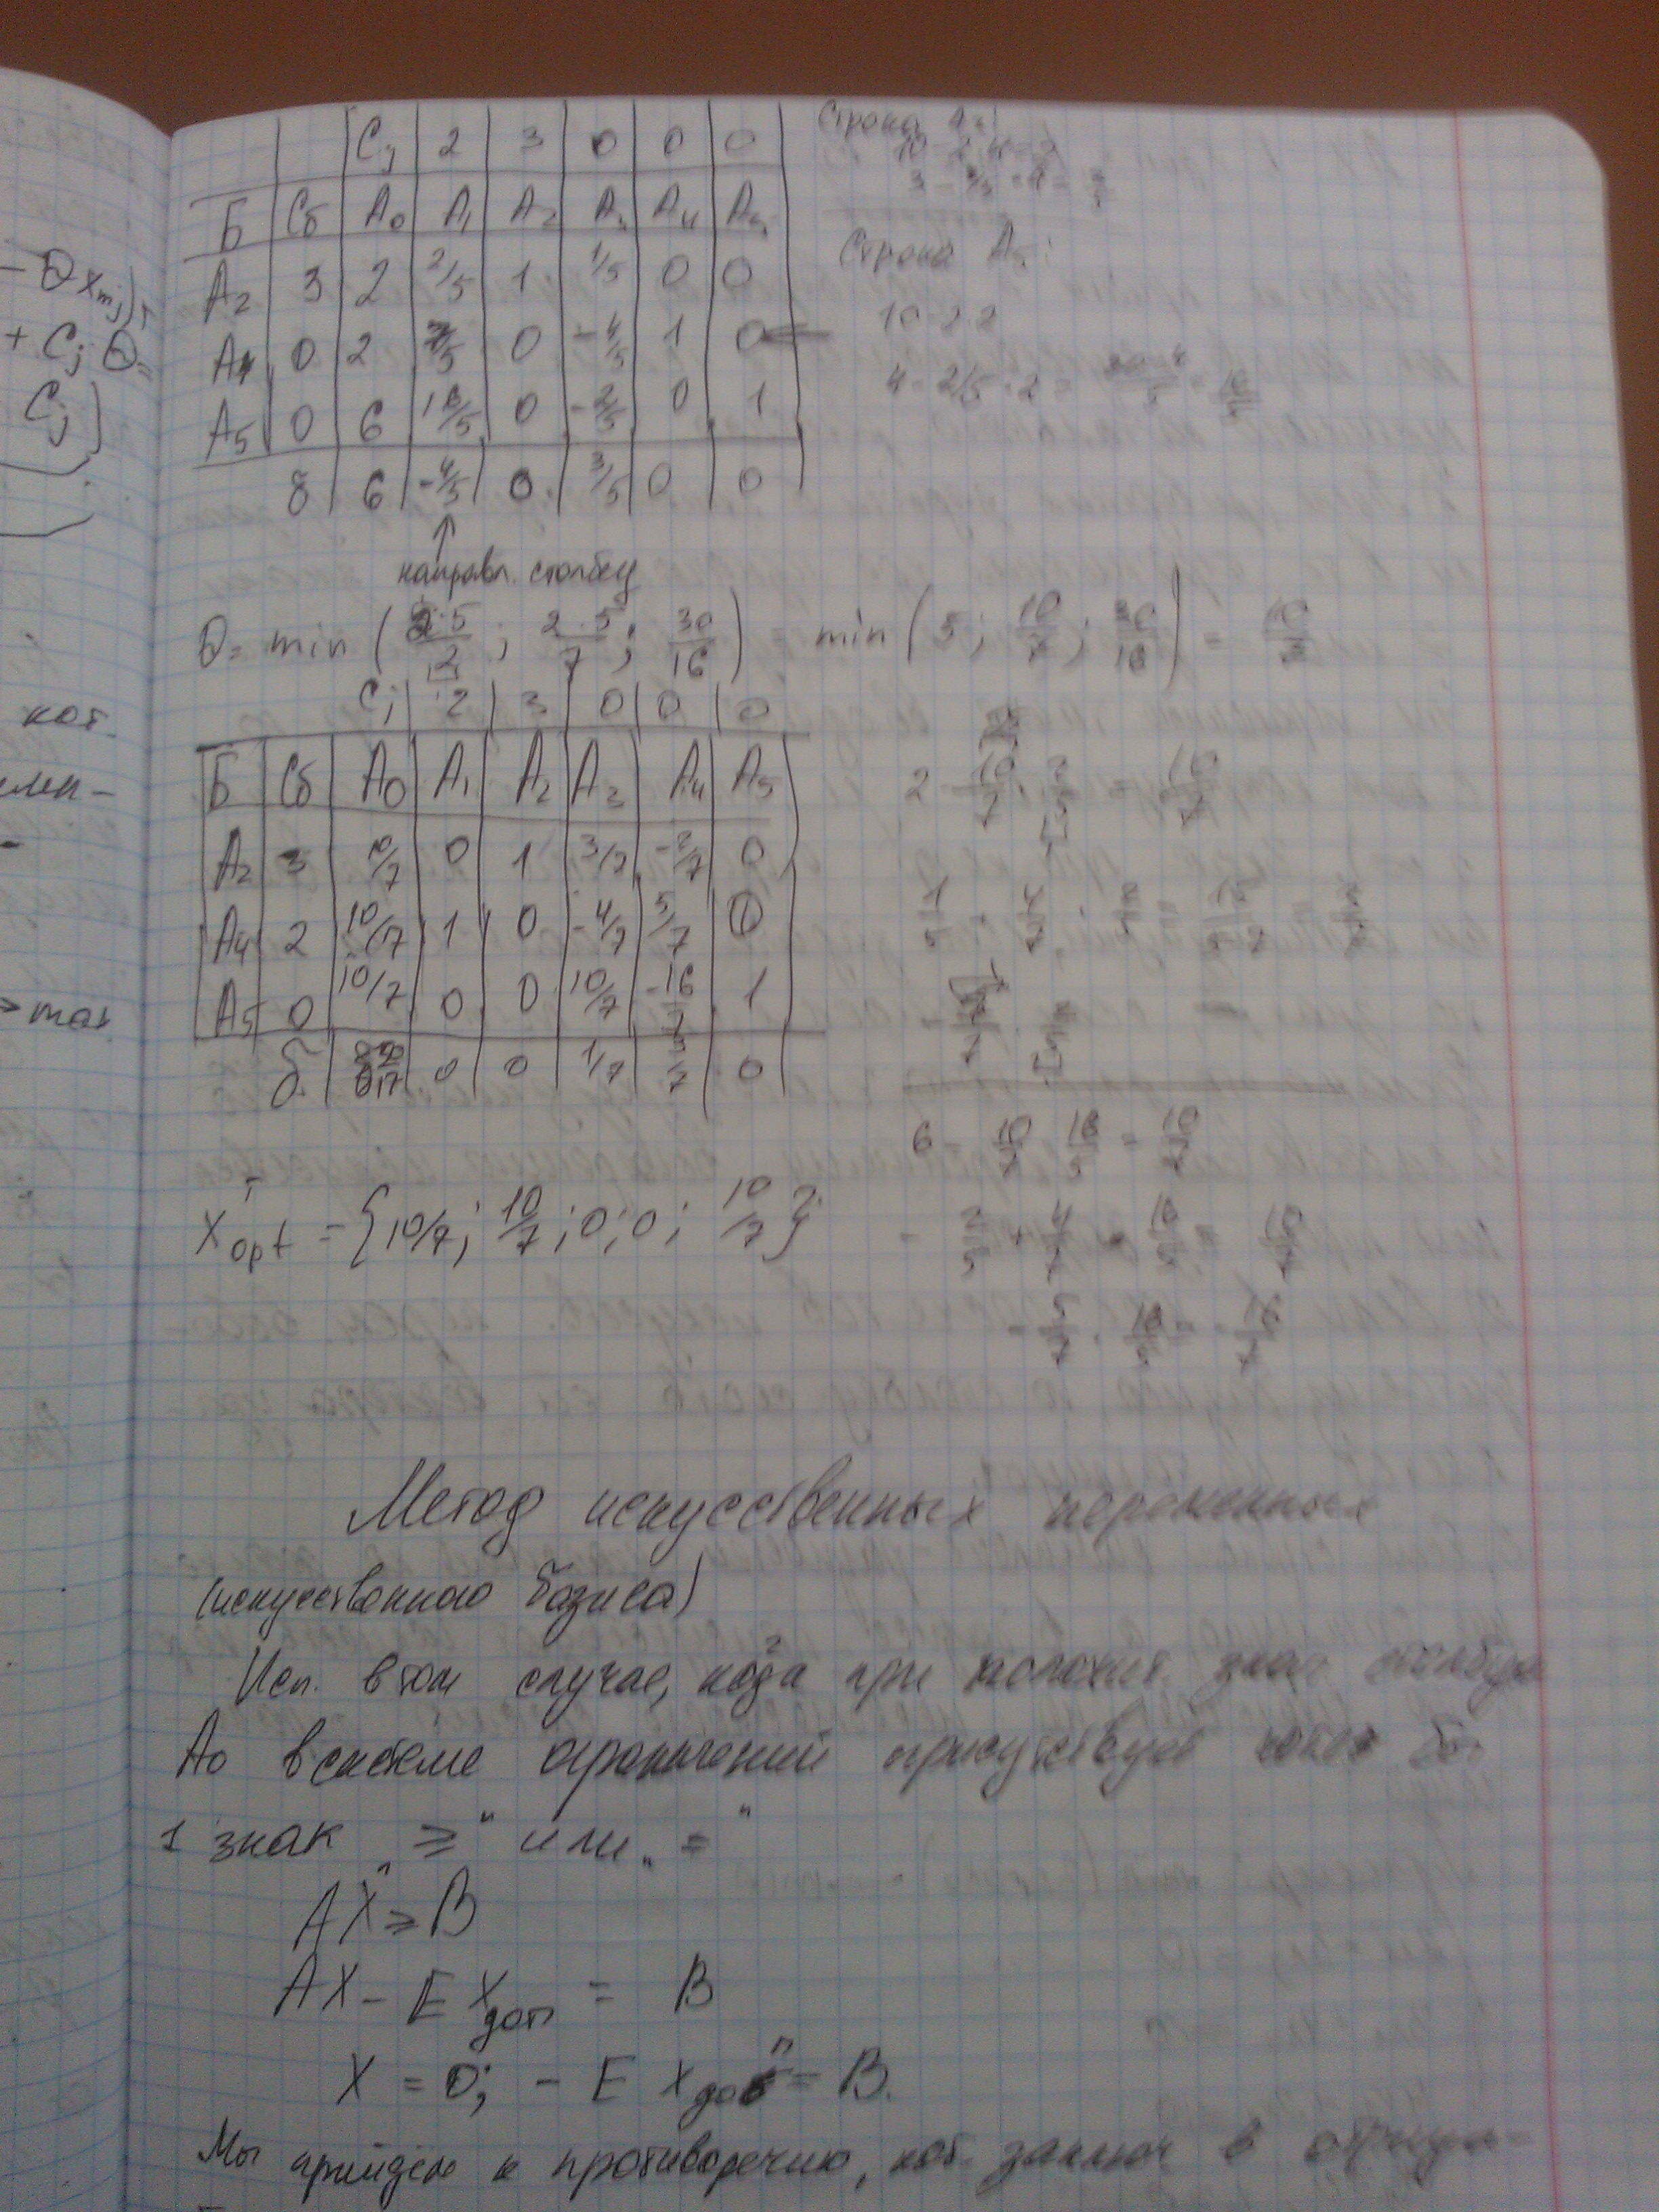 Cj 2 3 0 0 0
Б Сб A0 A1 A2 A3 A4 A5
A2 3 2 2/5 1 1/5 0 0
A4 0 2 7/5 0 -4/5 1 0
A5 0 6 16/5 0 -2/5 0 1
δ 6 -4/5 0 3/5 0 0
↑
направл. столбец
Строка
Строка A5:
10-2·2
4 - 2/5 · 2 = = 16/5
- θxmj)
+ Cj θ =
Cj)
θ = min ( 2·5/2 ; 2·5/7 ; 30/16 ) = min ( 5; 10/7 ; 30/16 ) = 10/7
Cj 2 3 0 0 0
Б Сб A0 A1 A2 A3 A4 A5
A2 3 10/7 0 1 3/7 -2/7 0
A4 2 10/7 1 0 -4/7 5/7 0
A5 0 10/7 0 0 10/7 -16/7 1
δ 0 0 1/7 0
2 - 10/7 · 2/5 = 10/7
1/5 + 4/7 · 2/5 = 15/5·7 = 3/7
6 - 10/7 16/5 = 10/7
- 2/5 + 4/7 · 16/5 = 10/7
- 5/7 · 16/5 = - 16/7
кот.
> max
X^T opt = {10/7; 10/7; 0; 0; 10/7}
Метод искусственных переменных
(искусственного базиса)
Исп. в том случае, когда при знач столбца
A0 в системе ограничений присутствует хотя бы
1 знак „≥“ или „=“
AX ≥ B
AX - E Xдоп = B
X = 0; - E Xдоп = B.
Мы прийдём к противоречию, кот. заключ в